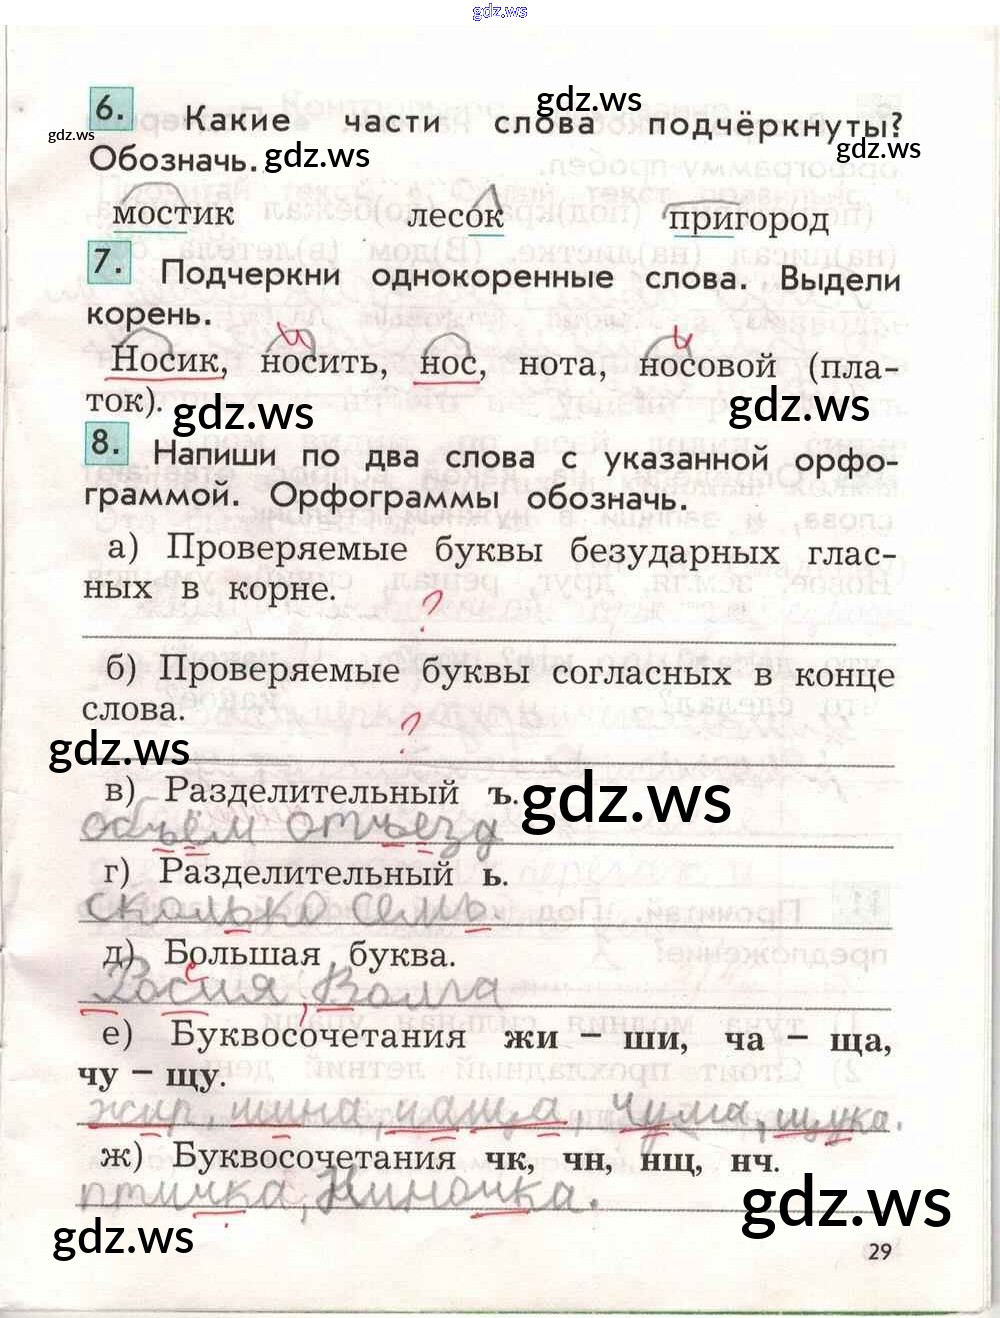 gdz.ws
6. Какие части слова подчёркнуты?
gdz.ws
gdz.ws
Обозначь.
gdz.ws
gdz.ws
мостик лесок пригород
7. Подчеркни однокоренные слова. Выдели
корень.
и и
Носик, носить, нос, нота, носовой (пла-
ток).
gdz.ws
gdz.ws
8. Напиши по два слова с указанной орфо-
граммой. Орфограммы обозначь.
а) Проверяемые буквы безударных глас-
ных в корне.
?
б) Проверяемые буквы согласных в конце
слова.
?
gdz.ws
в) Разделительный ъ.
gdz.ws
объём отъезд
г) Разделительный ь.
сколько семь.
д) Большая буква.
с
Росия, Волга
е) Буквосочетания жи – ши, ча – ща,
чу – щу.
жир, шина, чаща, чума, щука.
ж) Буквосочетания чк, чн, нщ, нч.
птичка, Ниночка.
gdz.ws
gdz.ws
29